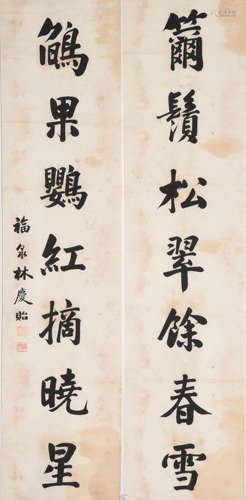 籋鬚松翠餘春雪
果鸚紅摘曉星
福泉林慶貽